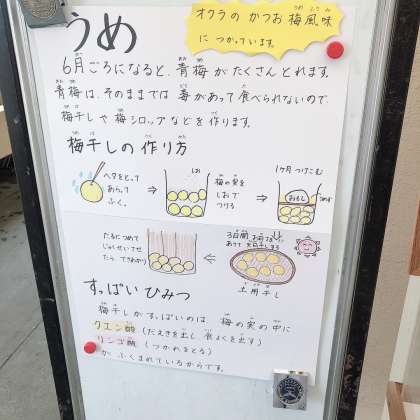 うめ
オクラのかつお梅風味
につかっています。
6月ごろになると、青梅がたくさんとれます。
青梅は、そのままでは毒があって食べられないので、
梅干しや梅シロップなどを作ります。
梅干しの作り方
ヘタをとって
あらって
ふく。
⇒
しお
梅の実を
しおで
つける
⇒
1ヶ月つけこむ
おもし
3日間
あてて
土用干し
⇐
たるにつめて
じゅくせいさせ
たら、できあがり
すっぱいひみつ
梅干しがすっぱいのは 梅の実の中に
クエン酸(だえきを出し食よくを出す)
リンゴ酸(つかれをとる)
が、ふくまれているからです。